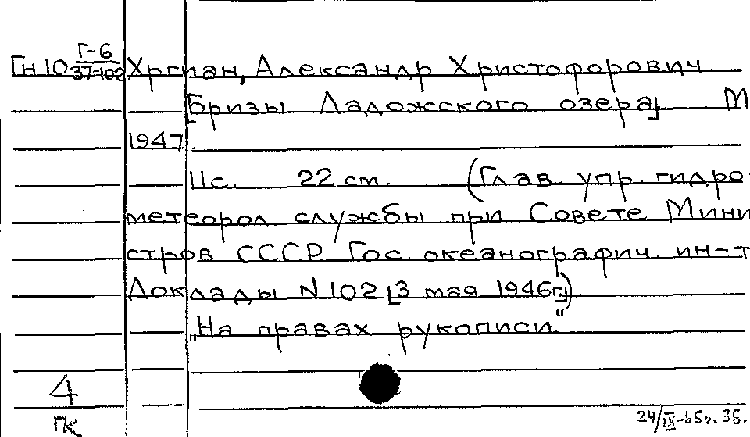 Гн 10 Г-6/37-102 Хргиан, Александр Христофорович
[Бризы Ладожского озера] М
1947
11с. 22 см. (Глав. упр. гидро-
метеорол службы при Совете Мини
стров СССР Гос. океанографич. ин-т
Доклады N 102 [3 мая 1946г])
"На правах рукописи"
4
ГК
24/IX-65г. 35.